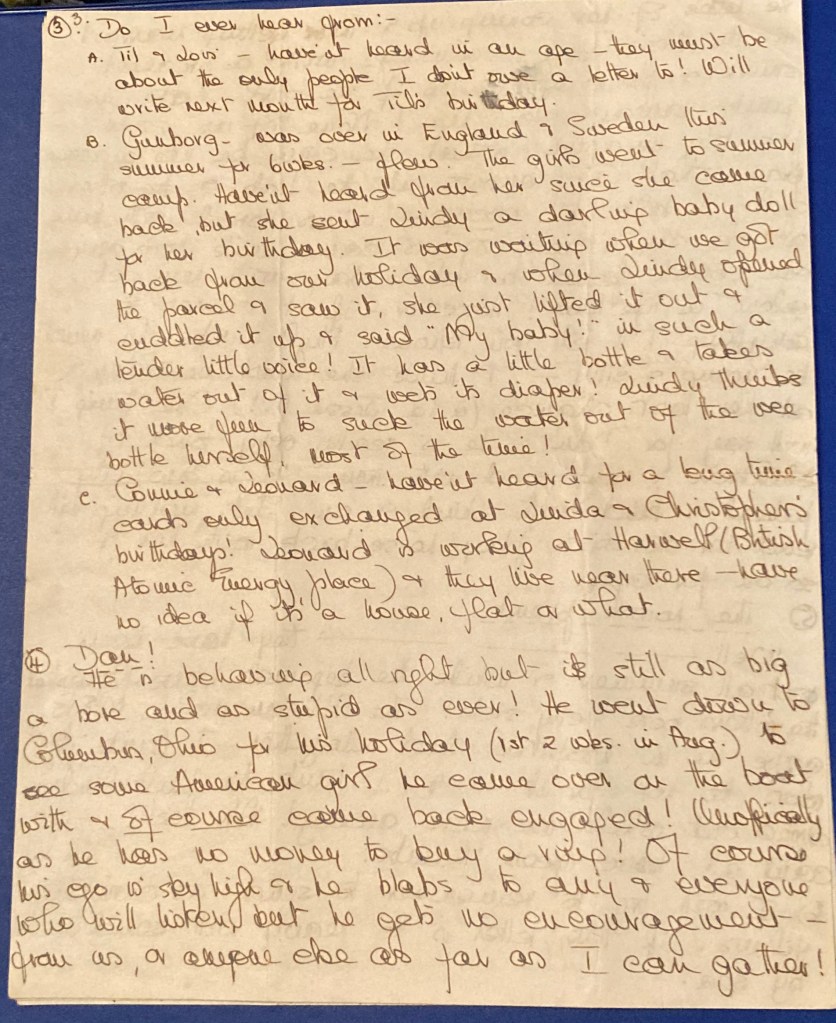 ③ 3. Do I ever hear from:-
A. Til & Lois - haven't heard in an age - they must be
about the only people I don't owe a letter to! Will
write next month for Til's birthday.
B. Gunborg - was over in England & Sweden this
summer for 6wks. - flew. The girls went to summer
camp. Haven't heard from her since she came
back, but she sent Lindy a darling baby doll
for her birthday. It was waiting when we got
back from our holiday & when Lindy opened
the parcel & saw it, she just lifted it out &
cuddled it up & said "My baby!" in such a
tender little voice! It has a little bottle & takes
water out of it & wets its diaper! Lindy thinks
it more fun to suck the water out of the wee
bottle herself, most of the time!
C. Connie & Leonard - haven't heard for a long time -
cards only exchanged at Linda & Christopher's
birthdays! Leonard is working at Harwell (British
Atomic Energy place) & they live near there - have
no idea if it's a house, flat or what.
④ Dan!
He is behaving all right but is still as big
a bore and as stupid as ever! He went down to
Columbus, Ohio for his holiday (1st 2 wks. in Aug.) to
see some American girl he came over on the boat
with & of course came back engaged! Unofficially
as he has no money to buy a ring! Of course
his ego is sky high & he blabs to any & everyone
who will listen, but he gets no encouragement -
from us, or anyone else as far as I can gather!